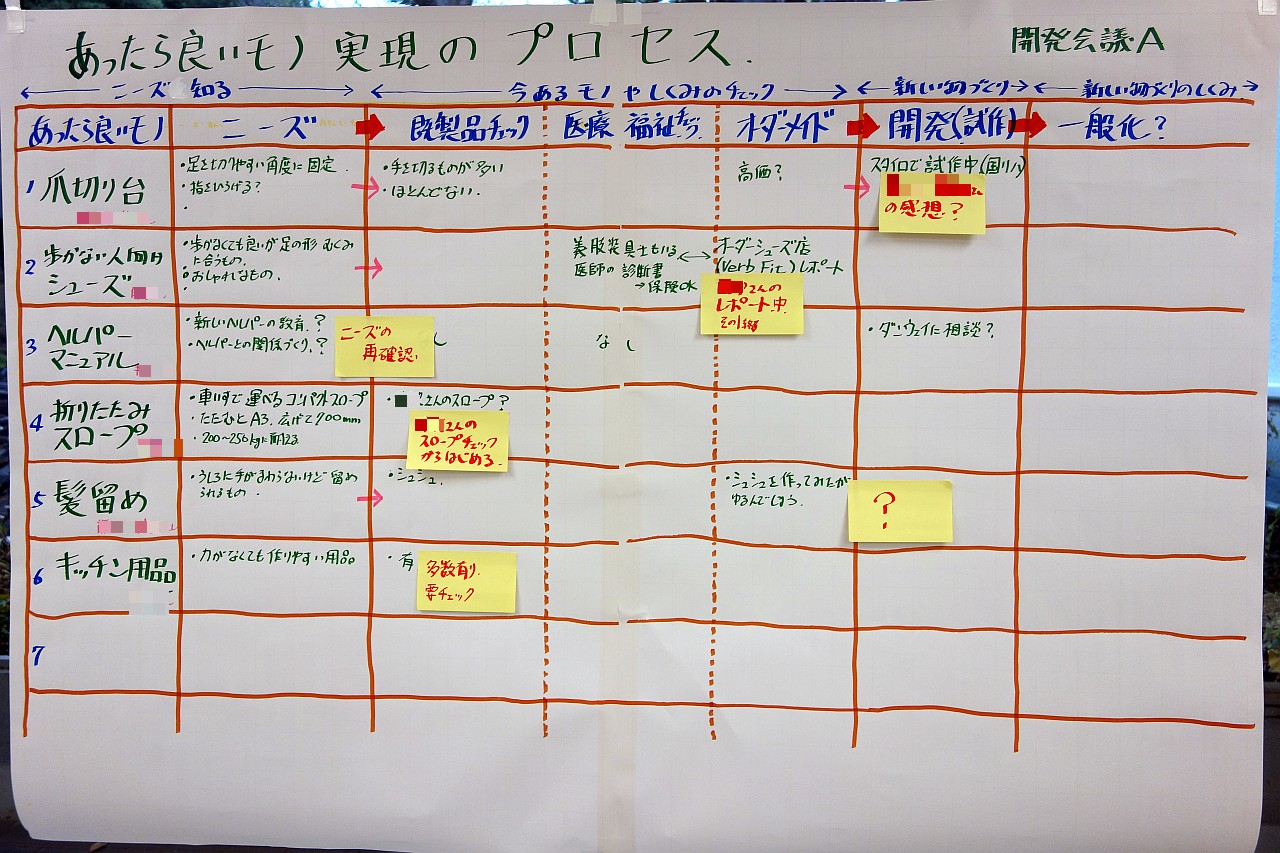 あったら良いモノ 実現のプロセス.
開発会議・A
ニーズ 知る
今あるモノ やしくみのチェック
新しい物づくり
新しい物づくりのしくみ
あったら良いモノ
ニーズ
既製品チェック
医療 福祉チェック
オーダーメイド
開発(試作)
一般化?
1 爪切り台
・足を切りやすい角度に固定.
・指をひろげる?
・手を切るものが多い
・ほとんどない.
高価?
スタイロで試作中(国リハ)
の感想?
2 歩かない人向け
シューズ
・歩かなくても良いが足の形 むくみ
に合うもの.
・おしゃれなもの.
義肢装具士もいる
医師の診断書
→保険OK
オーダーシューズ店
(Verb Fit)レポート
さんの
レポート中.
その1編
3 ヘルパー
マニュアル
・新しいヘルパーの教育.?
・ヘルパーとの関係づくり.?
ニーズの
再確認.
し
な し
・ダンウェイに相談?
4 折りたたみ
スロープ
・車いすで運べるコンパクトスロープ
・たたむとA3. 広げと900mm
・200~256kgに耐える
・ さんのスロープ?
さんの
スロープチェック
からはじめる.
5 髪留め
・うしろに手がまわらないけど留め
られるもの.
・シュシュ.
・シュシュを作ってみたが
ゆるんでしまう.
?
6 キッチン用品
・力がなくても作りやすい用品
・有
多数有り.
要チェック
7